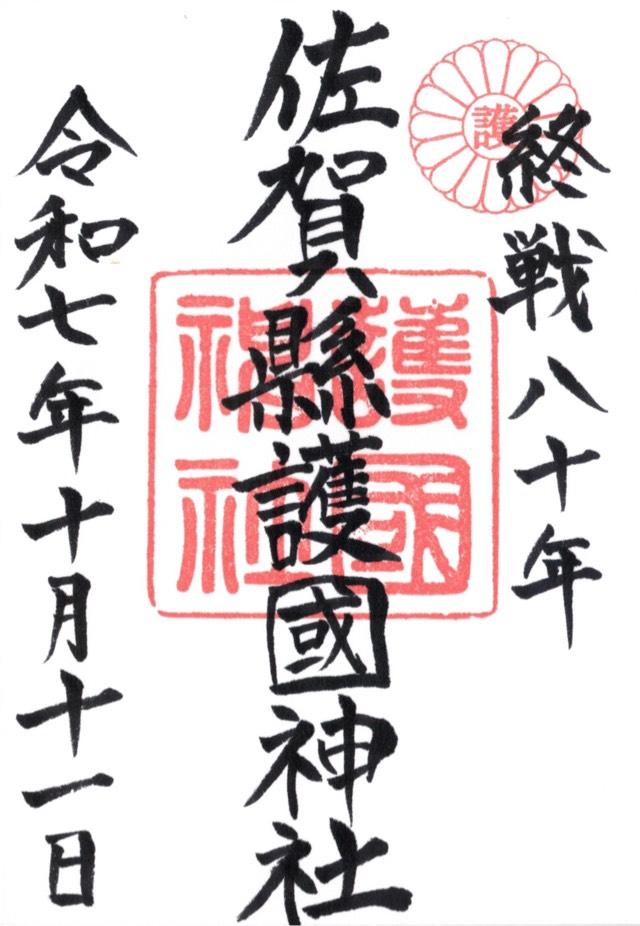 終戦八十年
護
佐賀縣護國神社
護國
神社
令和七年十月十一日